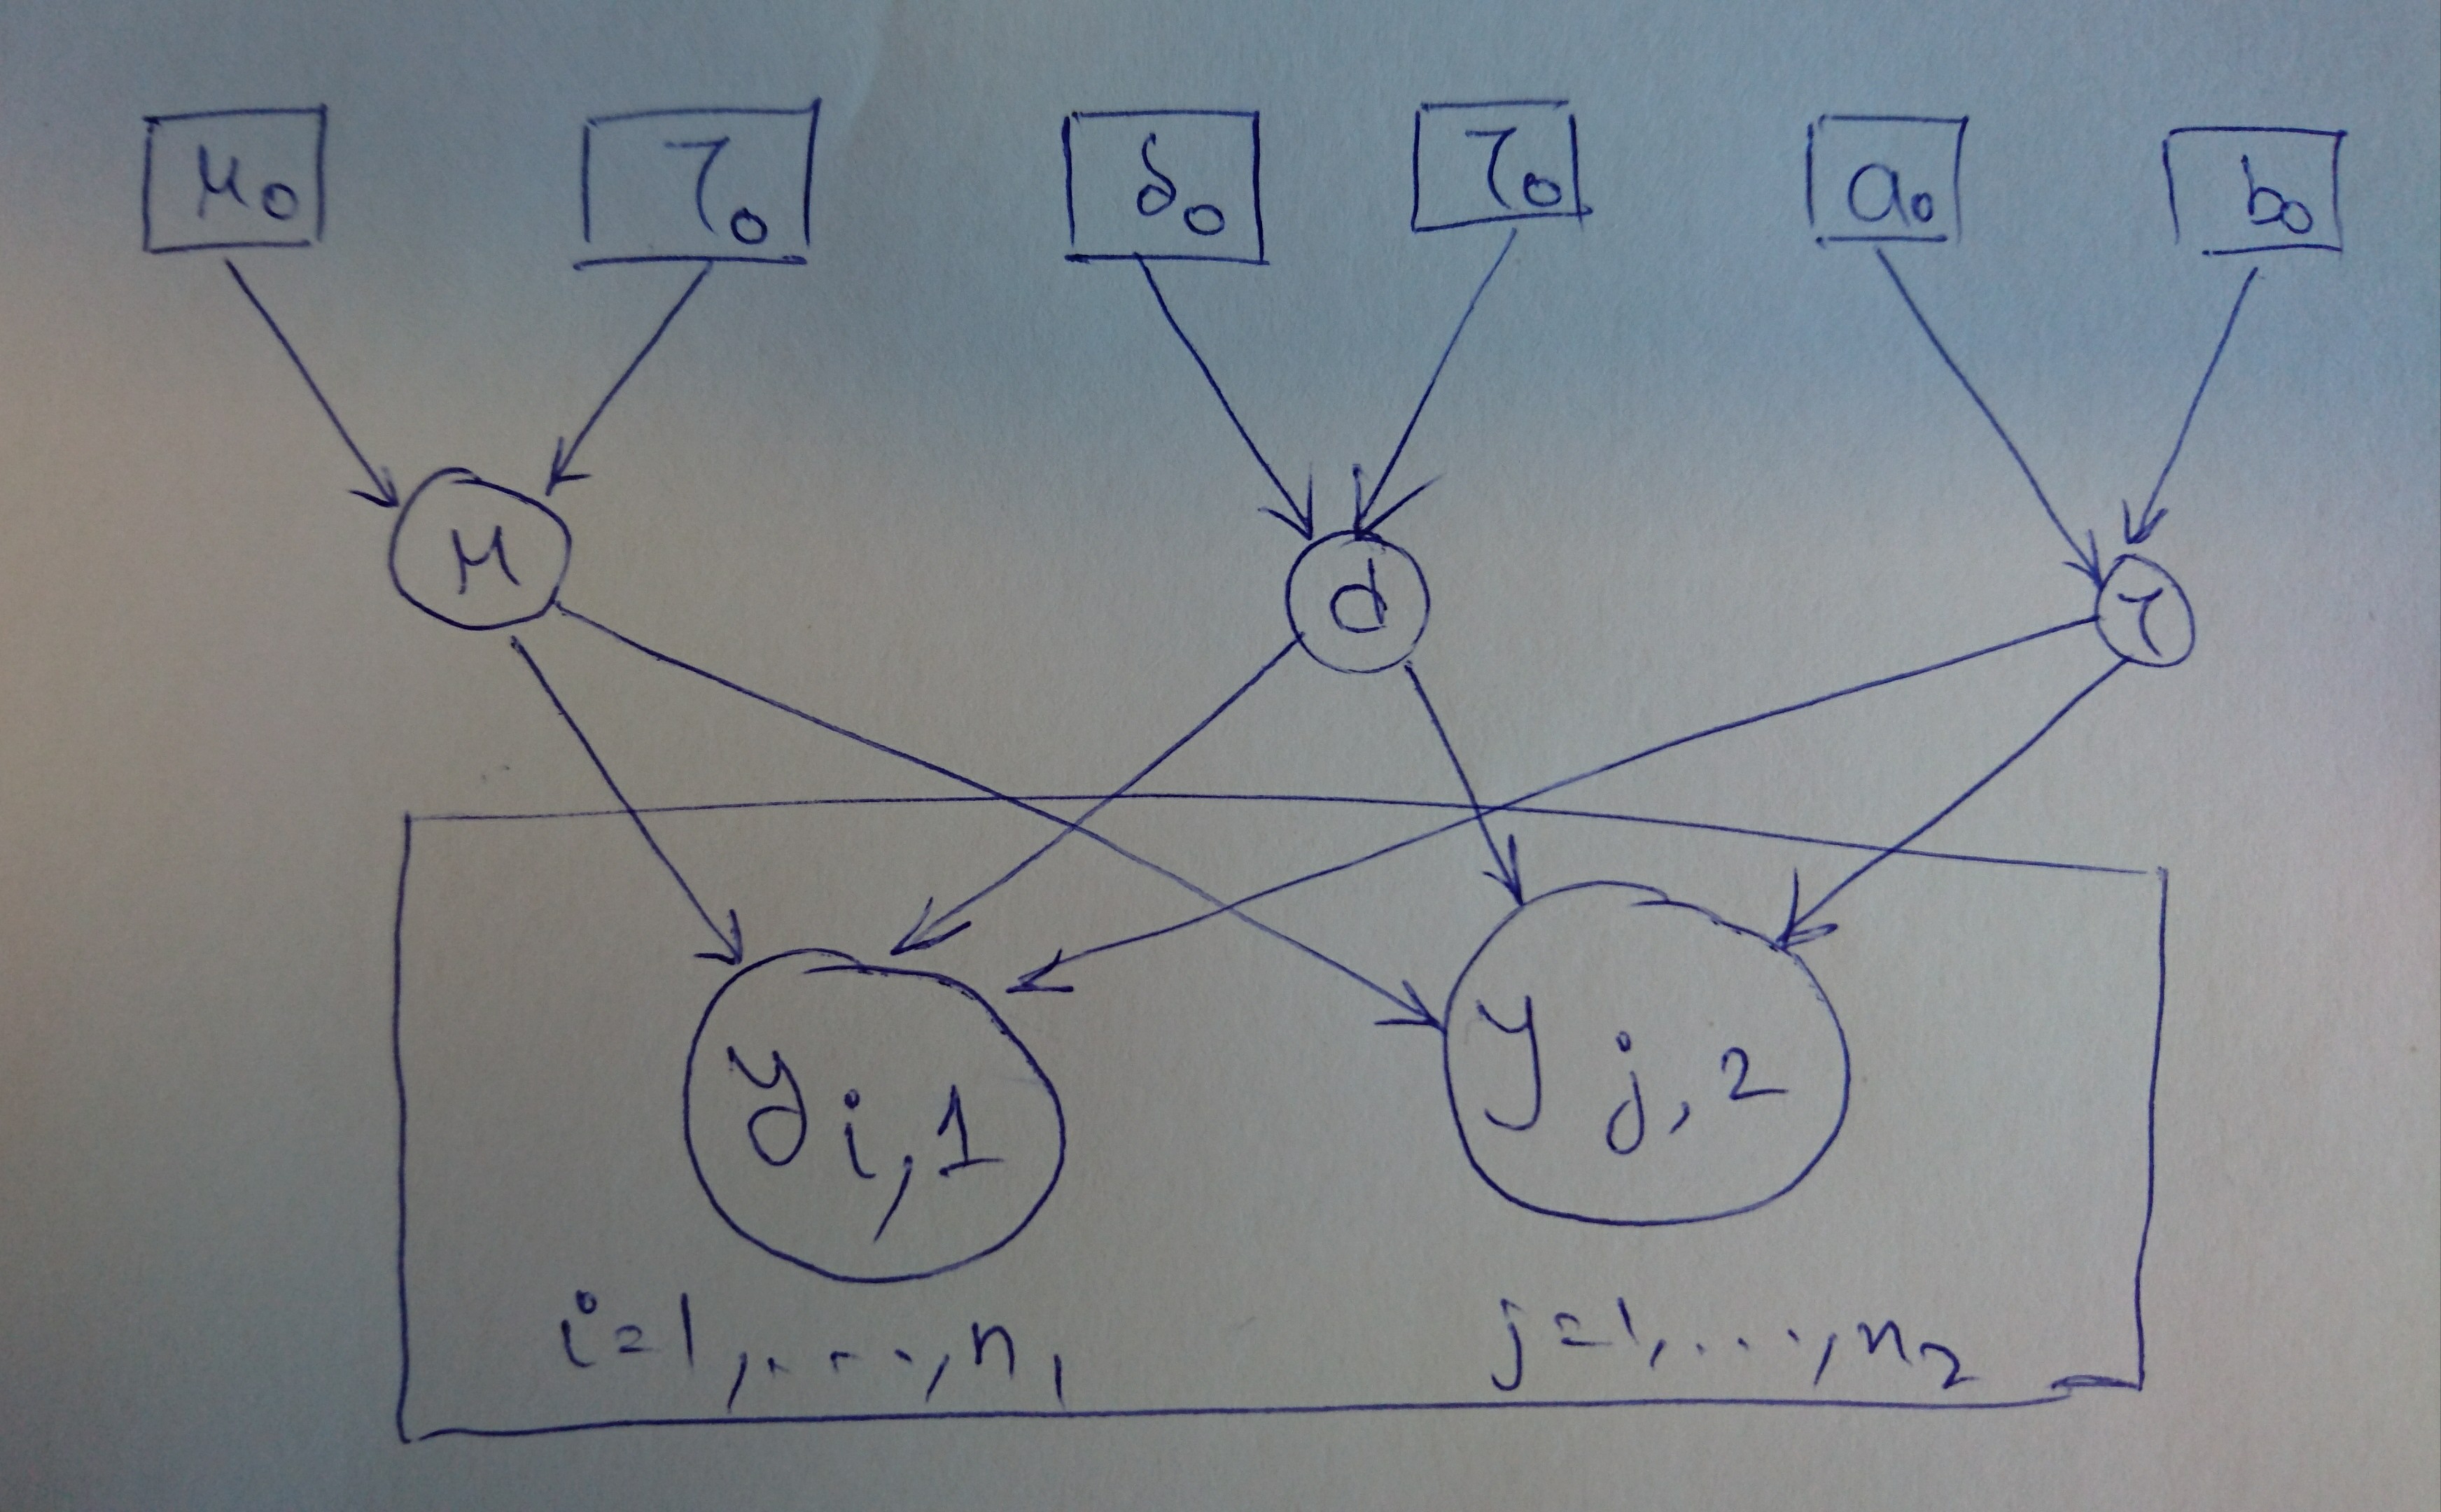 μ₀ τ₀ δ₀ τ₀ a₀ b₀
μ d τ
y i,1 y j,2
i=1,....,n₁ j=1,...,n₂